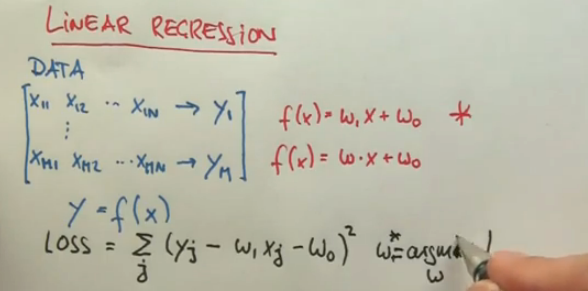 LINEAR REGRESSION
DATA
X11 X12 ·· X1N → Y1
⋮
XM1 XM2 ··· XMN → YM
f(x) = w1 x + w0 *
f(x) = w · x + w0
y = f(x)
LOSS = Σj (yj − w1 xj − w0)² w* =
w